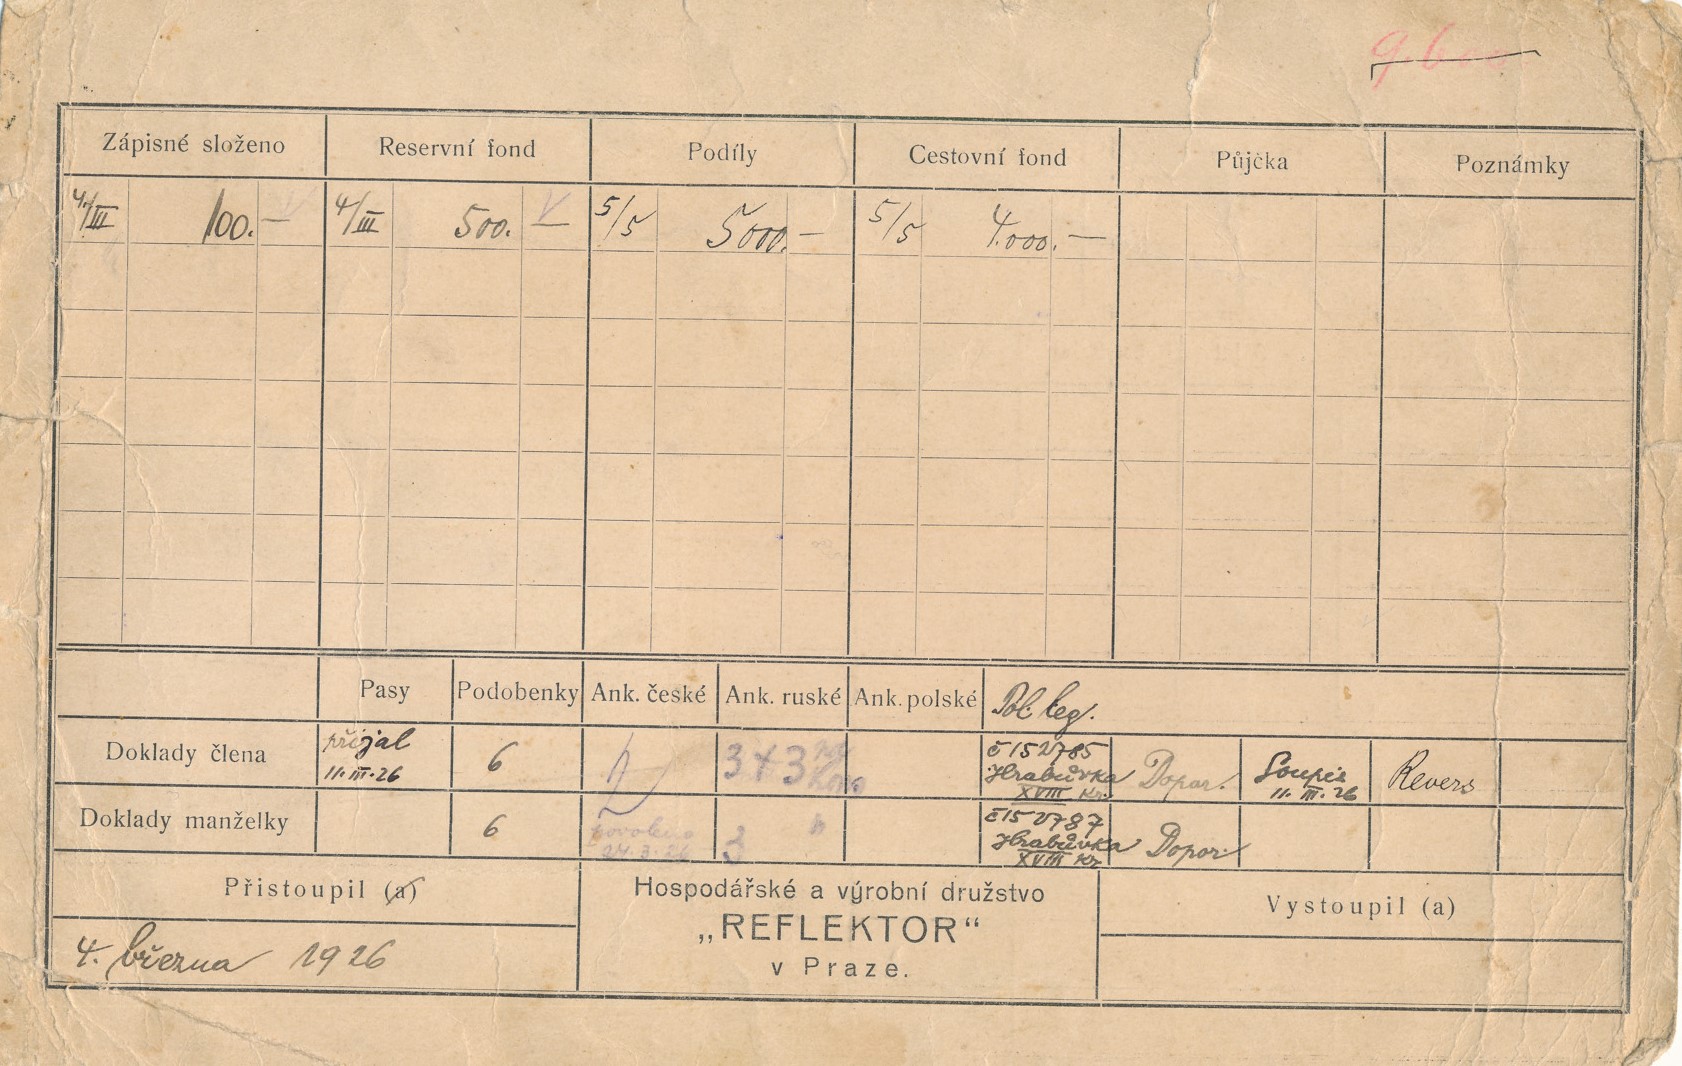 9600
Zápisné složeno Reservní fond Podíly Cestovní fond Půjčka Poznámky
4/III 100.— 4/III 500.— 5/5 5000.— 5/5 4.000.—
Pasy Podobenky Ank. české Ank. ruské Ank. polské Pol. leg.
Doklady člena přijal 11.III.26 6 3+3 č 152785 Hrabůvka XVIII Kr. Dopor. Soupis 11.III.26 Revers
Doklady manželky 6 povoleno 24.3.26 3 č 152787 Hrabůvka XVIII Kr Dopor.
Přistoupil (a)
4. března 1926
Hospodářské a výrobní družstvo
„REFLEKTOR“
v Praze.
Vystoupil (a)